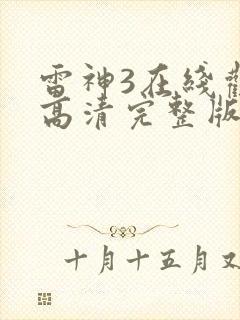 雷神3在綫
高清完整版
十月十五月